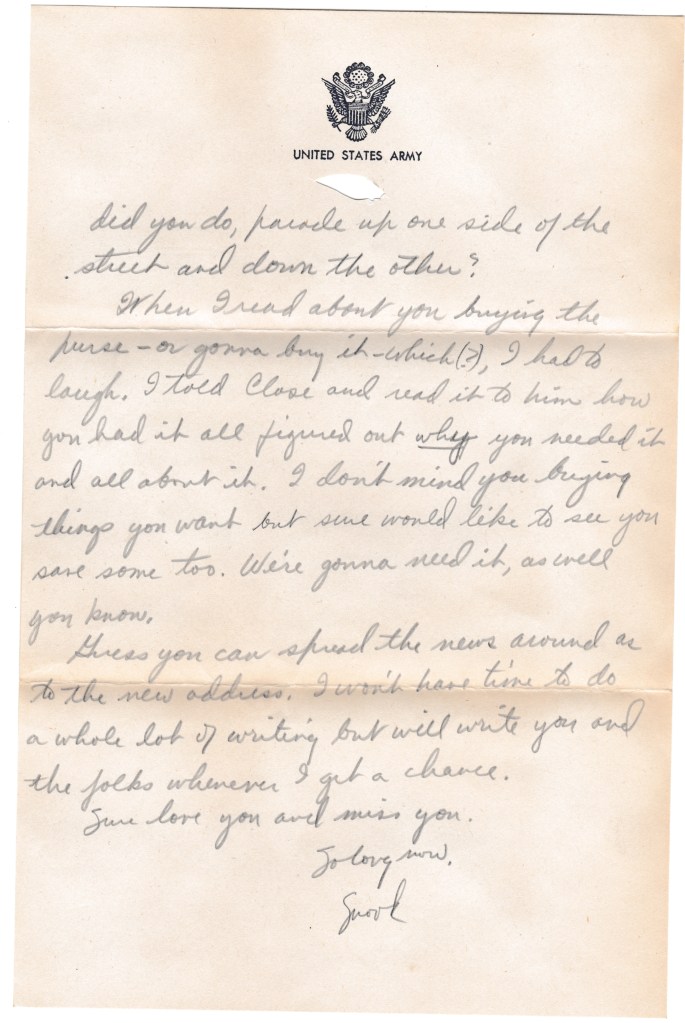 UNITED STATES ARMY
did you do, parade up one side of the
street and down the other?
When I read about you buying the
purse - or gonna buy it - which (?), I had to
laugh. I told Close and read it to him how
you had it all figured out why you needed it
and all about it. I don't mind you buying
things you want but sure would like to see you
save some too. We're gonna need it, as well
you know.
Guess you can spread the news around as
to the new address. I won't have time to do
a whole lot of writing but will write you and
the folks whenever I get a chance.
Sure love you and miss you.
So long now.
Snook